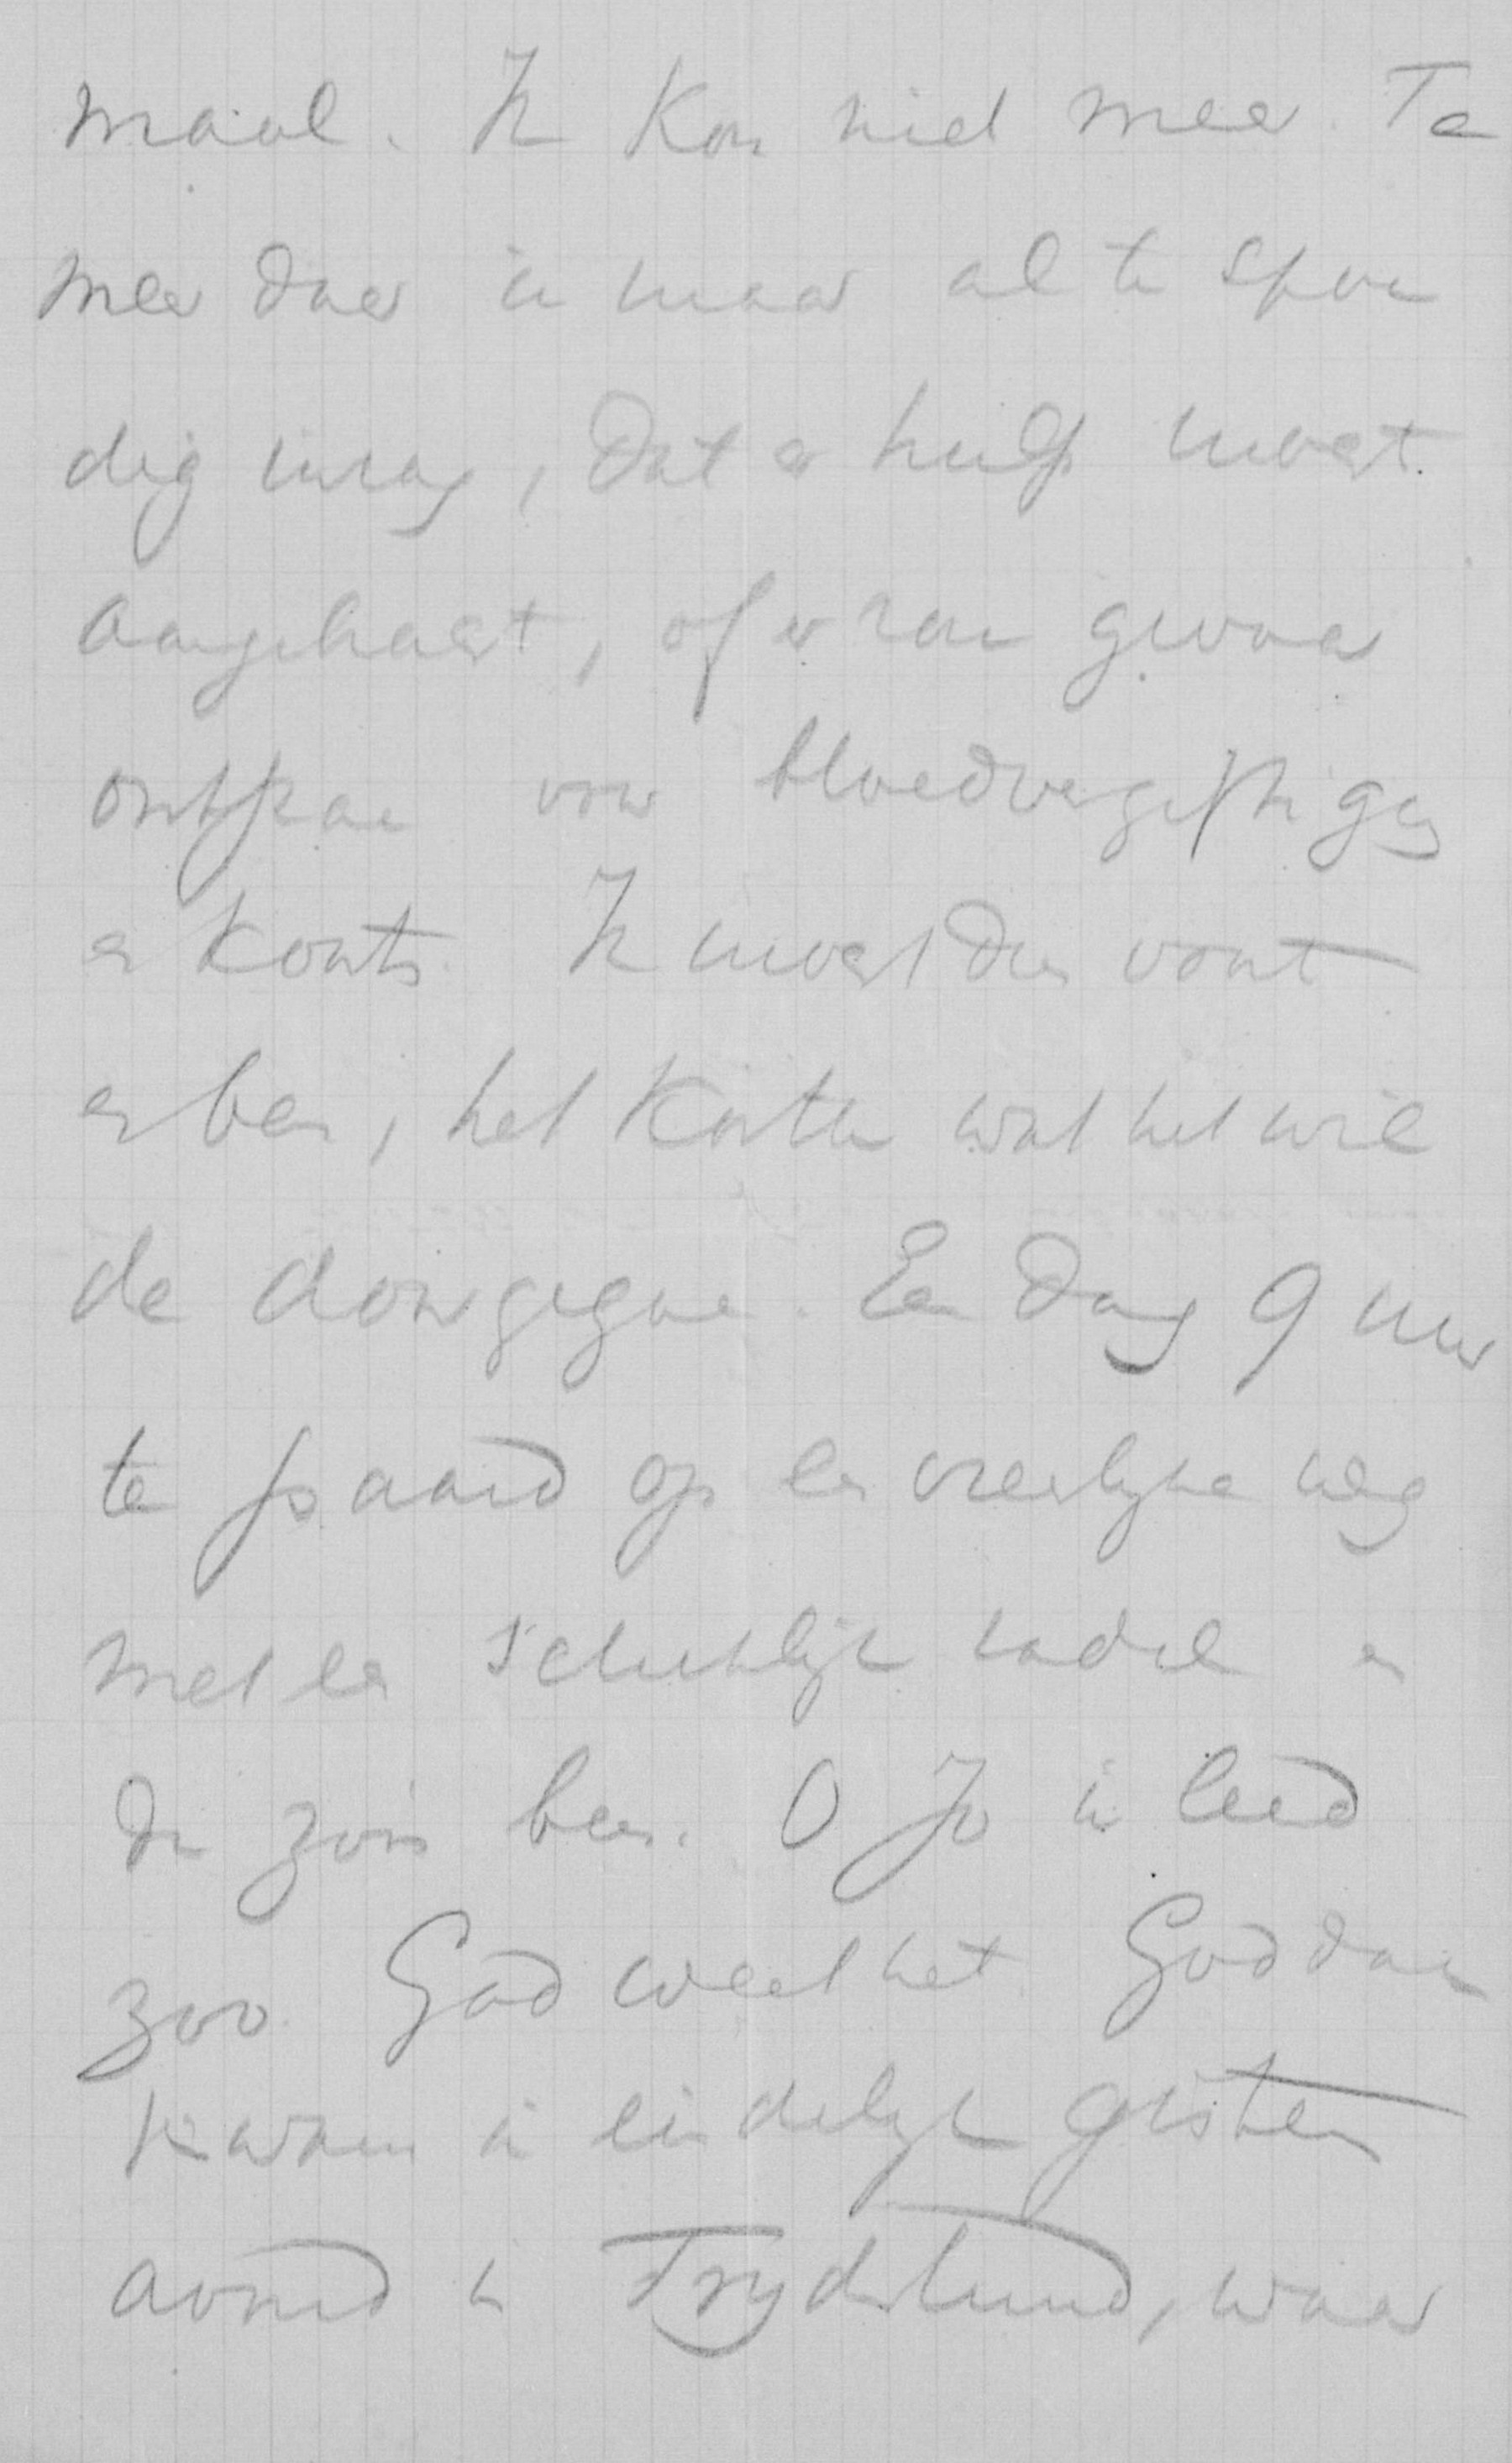 maal. Ik kon niet meer. Te
meer daar ik maar al te spoe
dig inzag, dat er hulp moest
aangebracht, of er zou gevaar
ontstaan voor bloedvergiftiging
en koorts. Ik moest dus voort
en ben, het kostte wat het wil
de doorgegaan. Een dag 9 uur
te paard op een vreeslijke weg
met een schrikkelijk zadel en
die zoo'n been. O Jo ik leed
zoo. God weet het. Goddank
kwam ik eindelijk gisteren
avond in Frydenlund, waar